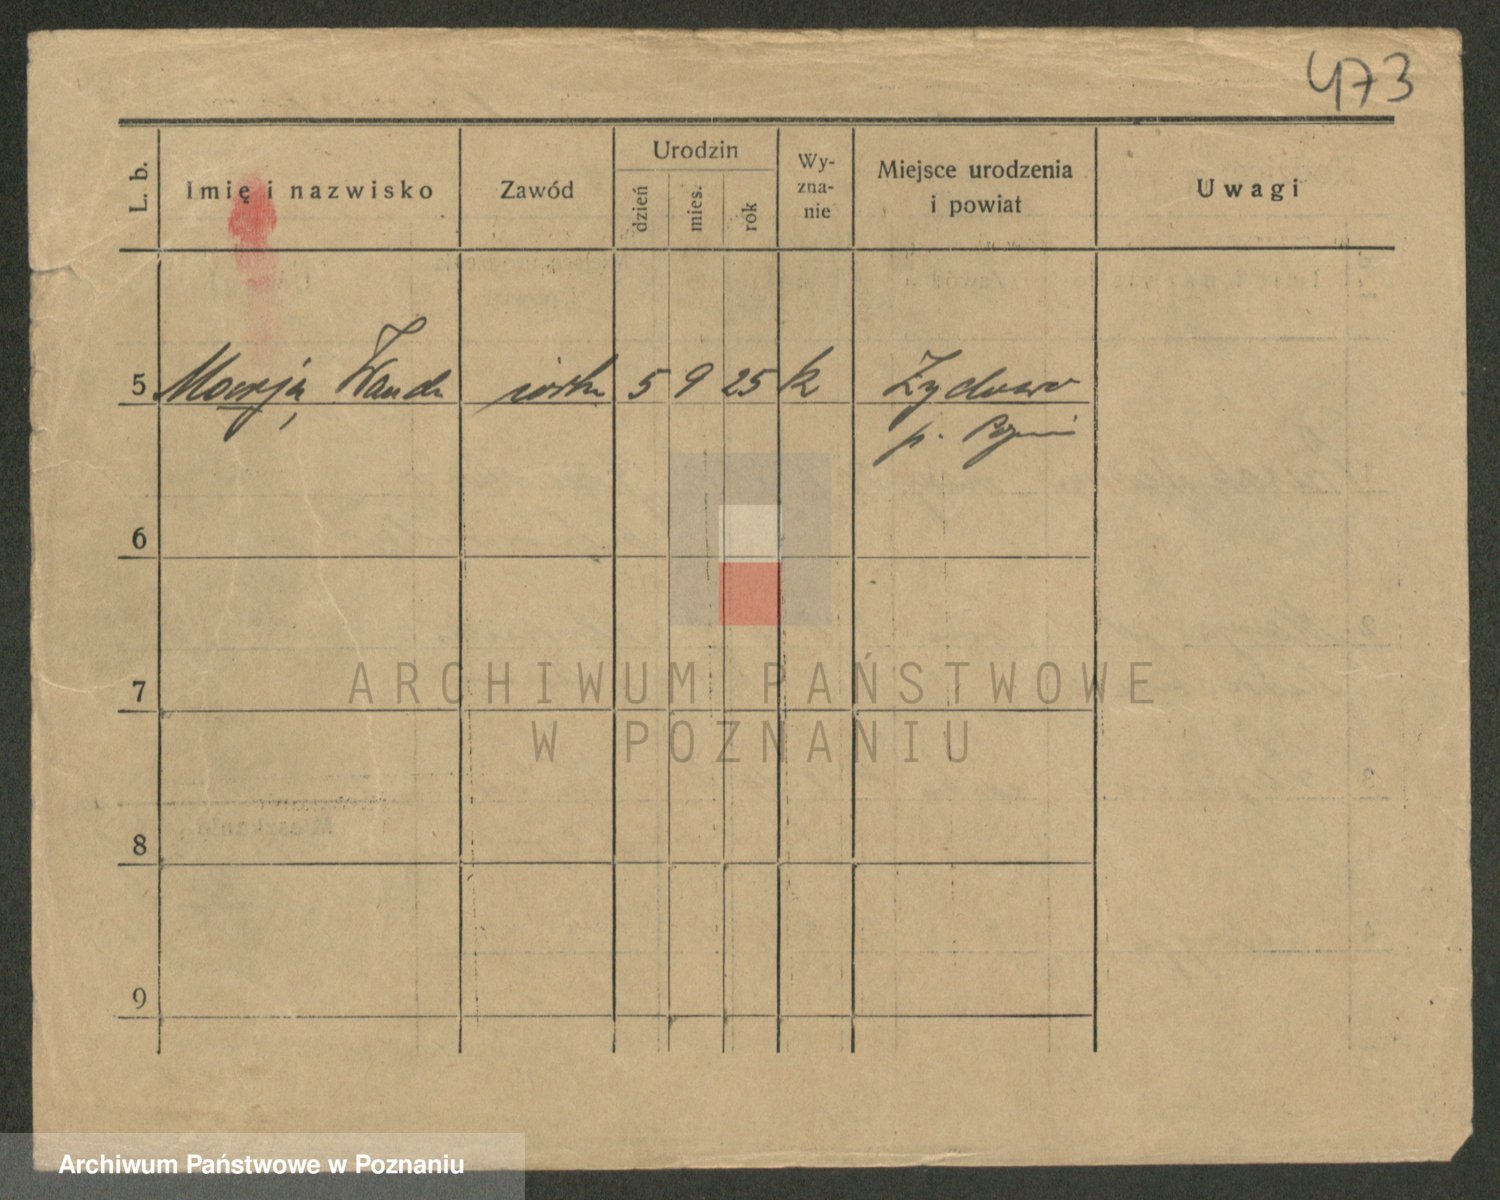 473
L. b.
Imię i nazwisko
Zawód
Urodzin
dzień
mies.
rok
Wy-
zna-
nie
Miejsce urodzenia
i powiat
Uwagi
5 Maryja Wanda córka 5 9 25 k Żydowo
p.
6
7
8
9
Mieszkanie
ARCHIWUM PAŃSTWOWE
W POZNANIU
Archiwum Państwowe w Poznaniu